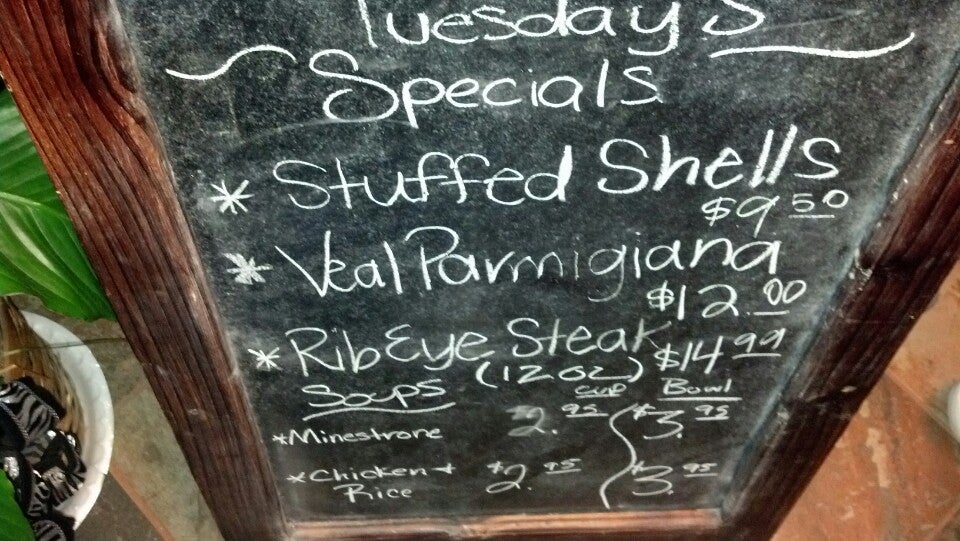 Tuesday's
Specials
* Stuffed Shells
$9.50
* Veal Parmigiana
$12.00
* Rib Eye Steak $14.99
(12oz)
Soups cup Bowl
*Minestrone $2.95 $3.95
*Chicken + $2.95 $3.95
Rice